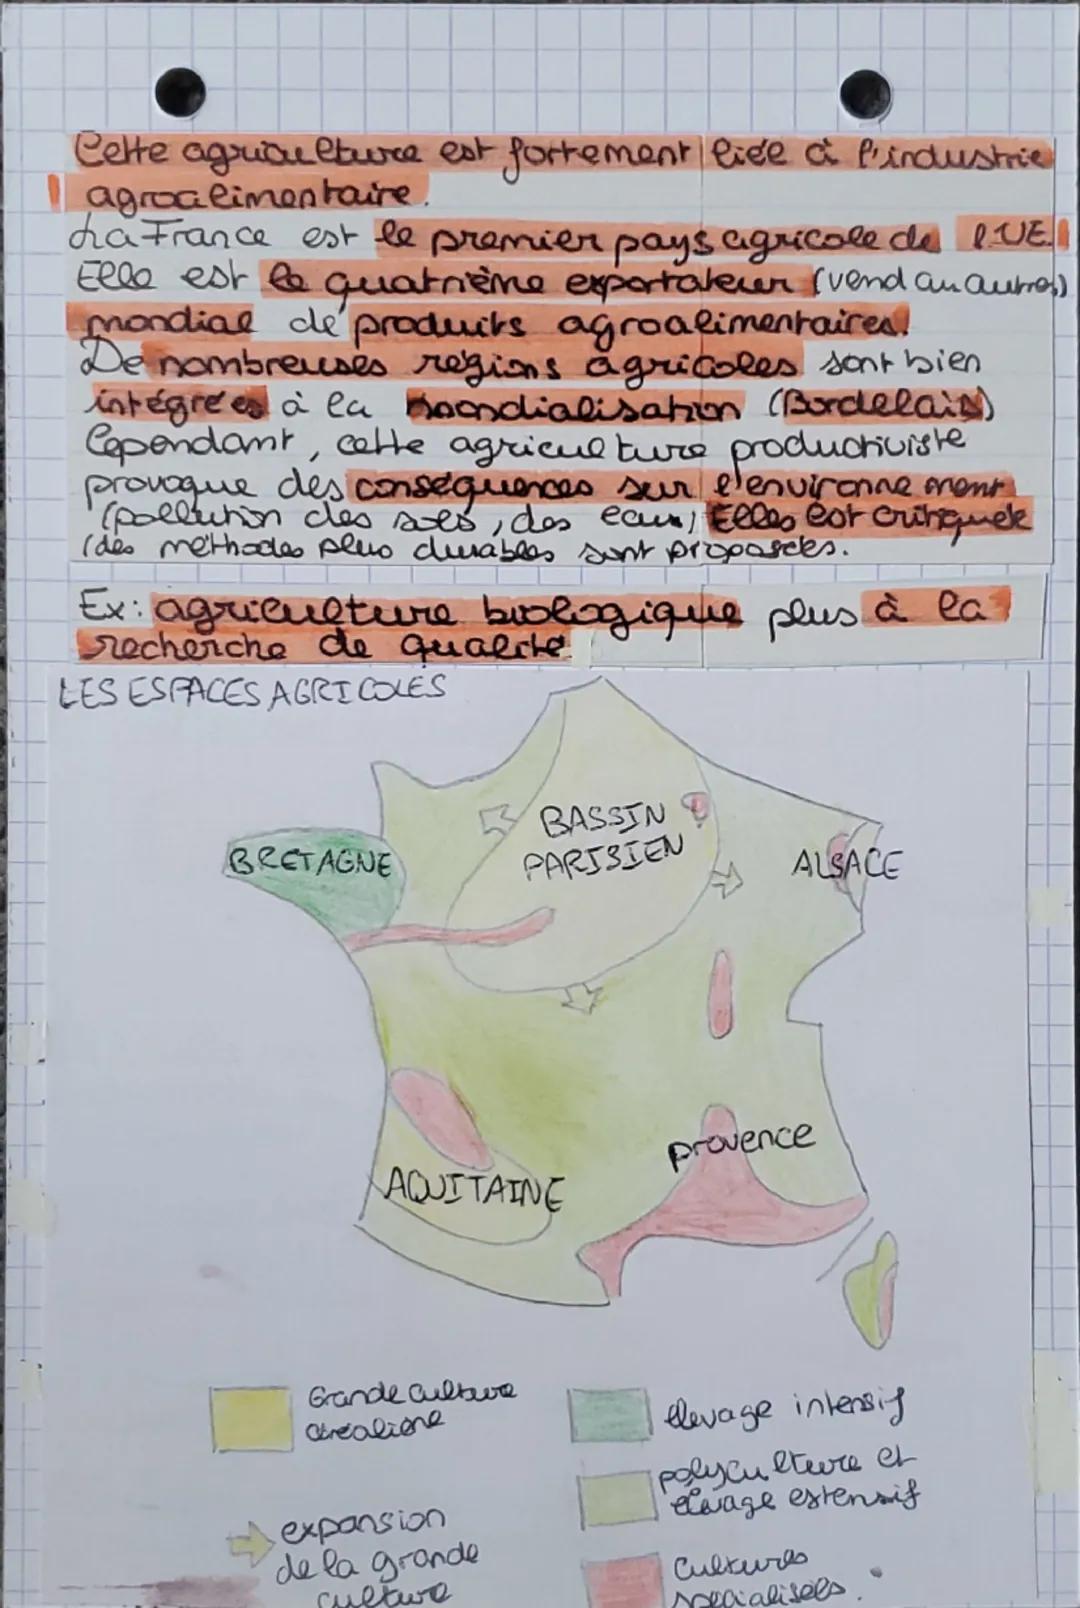 Cette agriculture est fortement liée à l'industrie
agroalimentaire.
La France est le premier pays agricole de l'UE.
Elle est le quatrième exportateur (vend au autres)
mondial de produits agroalimentaires.
De nombreuses régions agricoles sont bien
intégrées à la mondialisation (Bordelais)
Cependant, cette agriculture productiviste
provoque des conséquences sur l'environnement
(pollution des sols, des eaux) Elles est critiquée
(des méthodes plus durables sont proposées.
Ex: agriculture biologique plus à la
recherche de qualité
LES ESPACES AGRICOLES
BASSIN
PARISIEN
BRETAGNE
ALSACE
provence
AQUITAINE
Grande culture
céréalière
élevage intensif
polyculture et
élevage extensif
expansion
de la grande
culture
Cultures
spécialisées.